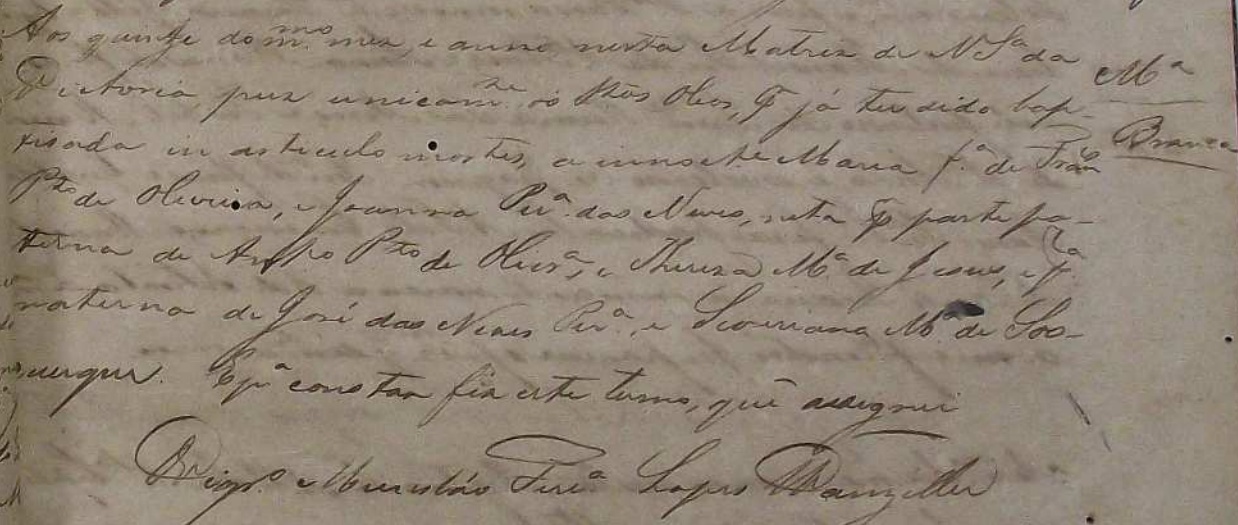 Aos quinze do m.mo mez, e anno, nesta Matriz de N. Sª da
Victoria puz unicam.te os Stos Oleos, q̃ já ter sido bap-
tisada in articulo mortis, a innoc.te Maria fª de
P.to de Oliveira, e Joanna Perª das Neves, neta p̃ parte pa-
terna de P.to de Olivrª, e Thereza Mª de Jesus, e pª
materna de José das Neves Perª e Mª de
E pª constar fiz este termo, què assignei
Vigr.o Ferª Lopes Wanzeller
Mª
Branca